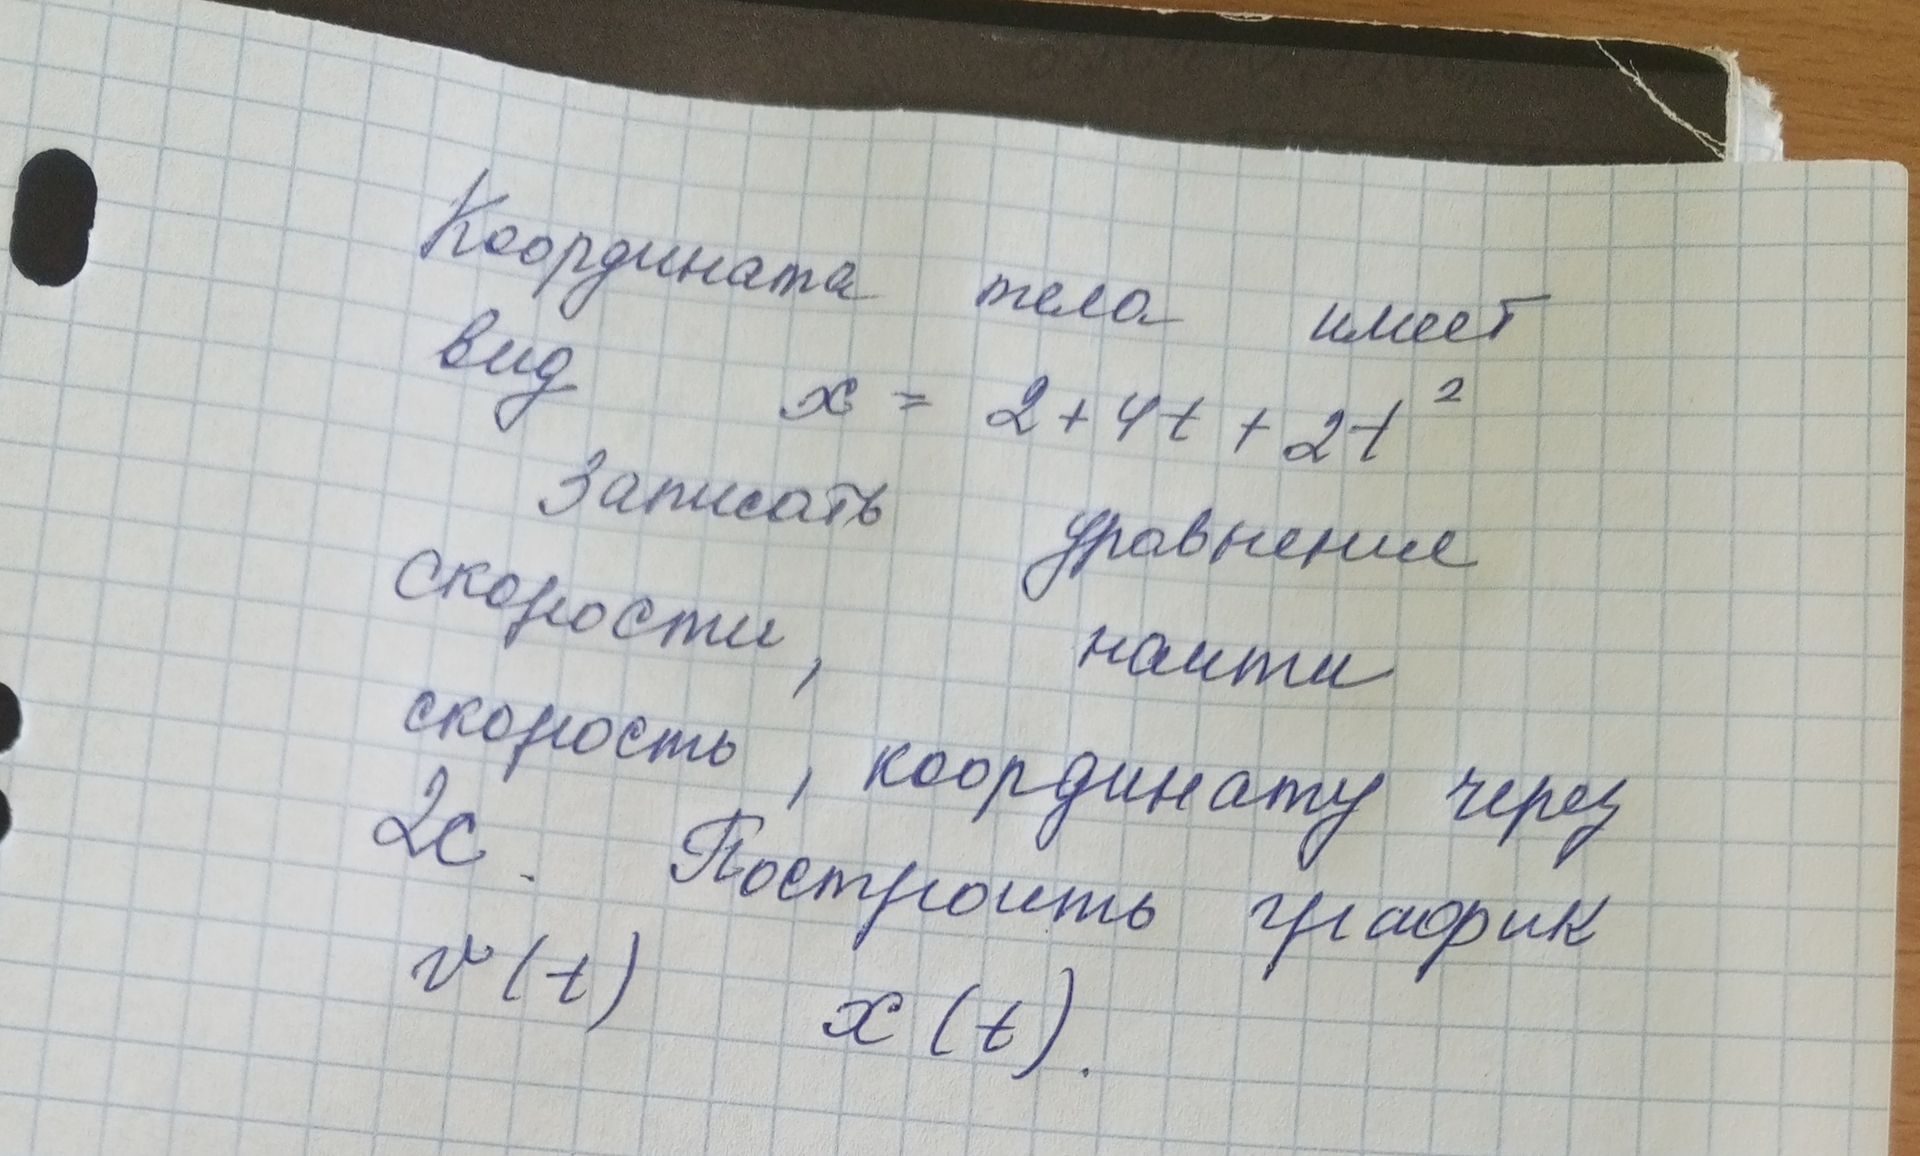 Координата тела имеет
вид x = 2 + 4t + 2t²
Записать уравнение
скорости, наити
скорость, координату через
2с. Построить график
v(t) x(t).